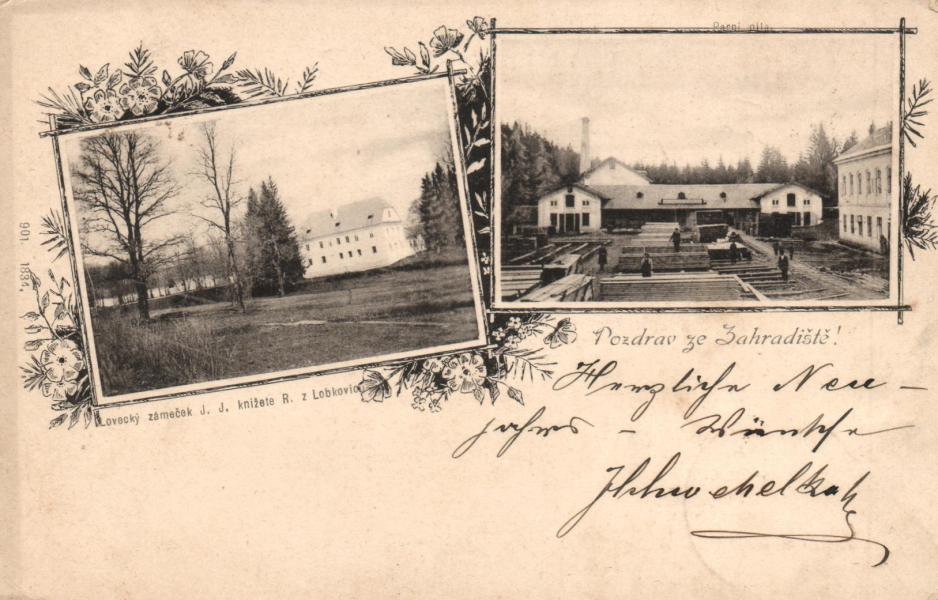 Parní pila.
901 1834.
Lovecký zámeček J. J. knížete R. z Lobkovic
Pozdrav ze Zahradiště!
Herzliche Neu-
jahrs - Wünsche